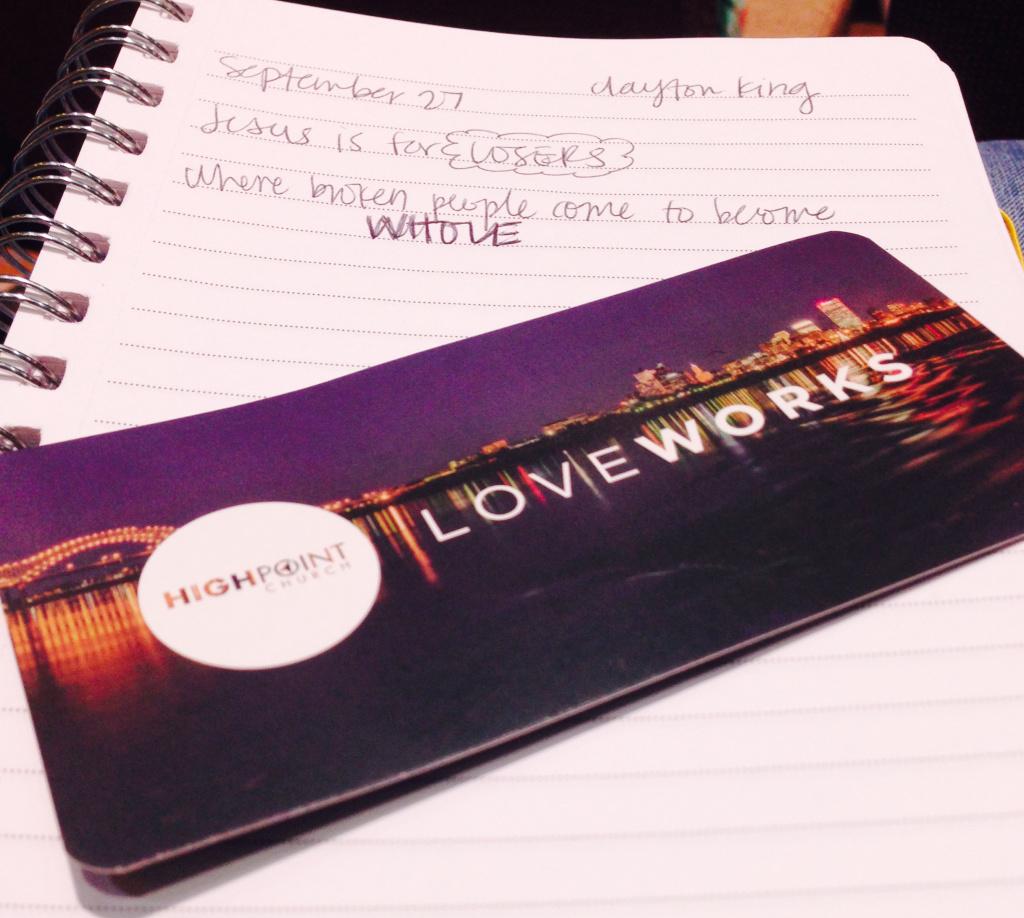 September 27 clayton king
Jesus is for {LOSERS}
where broken people come to become
WHOLE
LOVEWORKS
HIGHPOINT
CHURCH